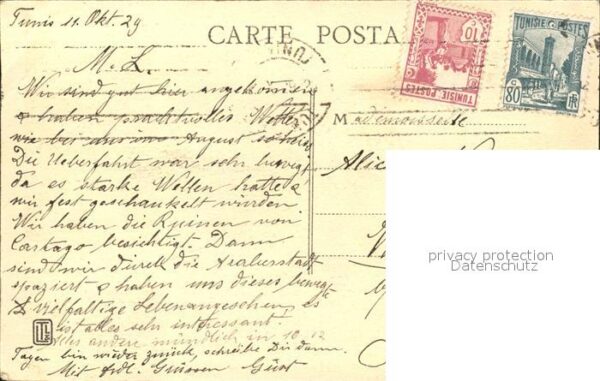 Tunis 11. Okt. 29
CARTE POSTA
M. L.
Wir sind gut hier angekommen
& haben prachtvolles Wetter
wie bei uns im August so schön
Die Ueberfahrt war sehr bewegt
da es starke Wellen hatte &
wir fest geschaukelt wurden
Wir haben die Ruinen von
Cartago besichtigt. Dann
sind wir durch die Araberstadt
spaziert & haben uns dieses bewegte
& vielfaltige Leben angesehen, es
ist alles sehr interessant!
Alles andere mündlich in 10-12
Tagen bin wieder zurück, schreibe Dir dann.
Mit frdl. Grüssen
10
TUNISIE POSTES
TUNISIE POSTES
80
RF
Mademoiselle
Alice
privacy protection
Datenschutz